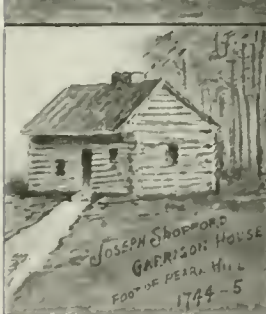 JOSEPH SHOFFORD
GARRISON HOUSE
FOOT OF PEARL HILL
1744-5